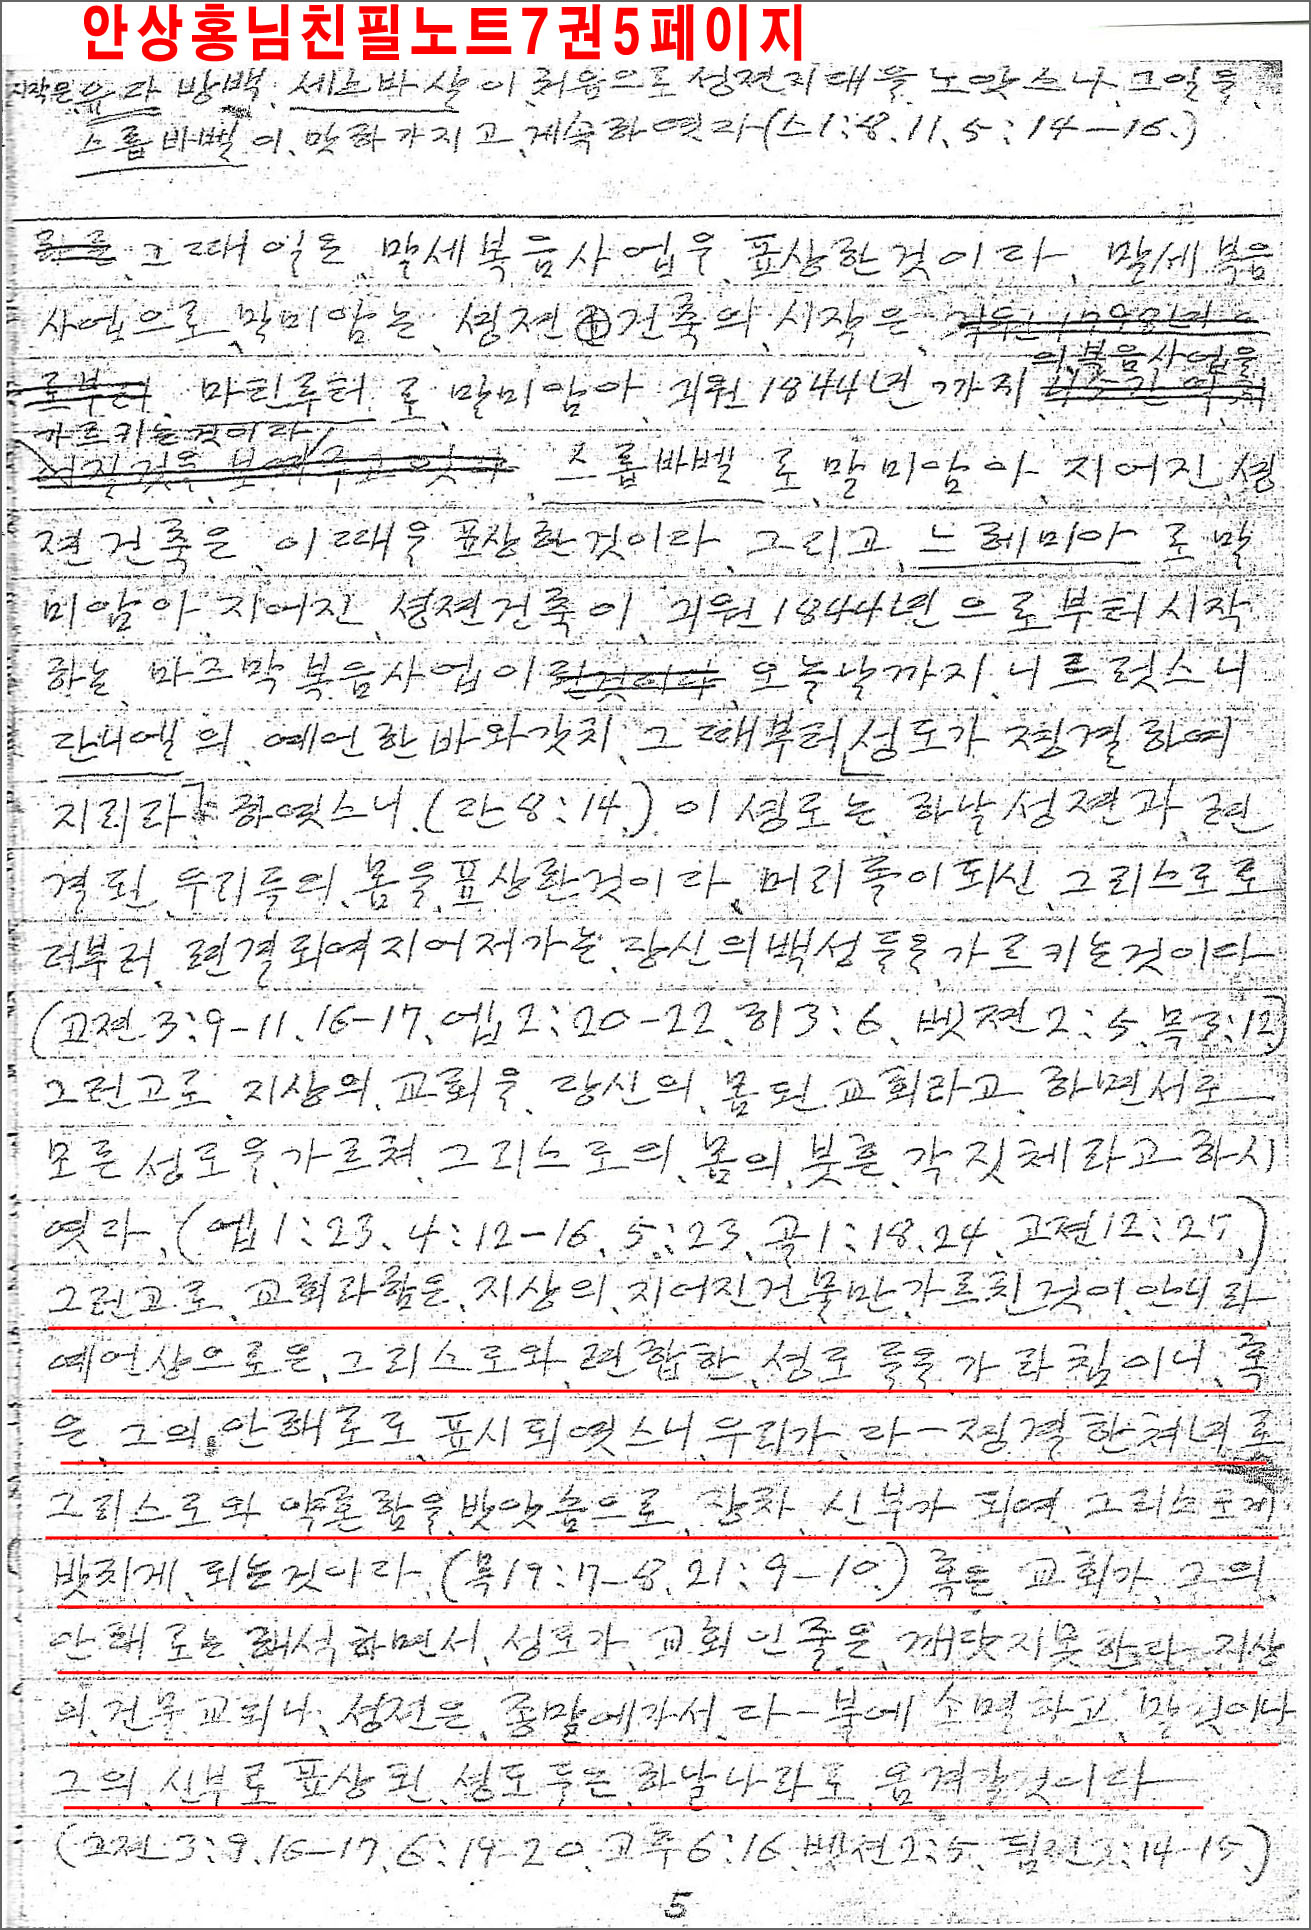 안상홍님친필노트7권5페이지
시작은 유다 방백. 세스바살이 처음으로 성젼지대을 노앗스나, 그일을
스룹바벨이, 맛하가지고, 계속하엿다 (스1:8, 11, 5:14-16.)
그때일은 말세복음사업우 표상한것이다, 말세복음
사업으로, 말미암는, 셩젼 건축의, 시작은,
의,복음사업을
마틴루터로, 말미암아, 긔원1844년까지
가르키는것이라
스룹바벨로, 말미암아, 지어진, 셩
젼건축은, 이때을 표상한것이라, 그리고, 느헤미아로 말
미암아, 지어진, 셩젼건축이, 긔원1844년으로부터시작
하는, 마즈막복음사업이 오늘날까지, 니르럿스니
단니엘의, 예언한바와갓치, 그때부터 성도가 졍결하여
지리라, 하엿스니, (단8:14.) 이 셩도는, 하날 성젼과, 련
결된, 우리들의, 몸을, 표상한것이라, 머리돌이되신, 그리스도로
더부러, 련결되여지어저가는, 당신의백성들을, 가르키는것이다
(고젼3:9-11, 16-17, 엡2:20-22, 히3:6, 벳젼2:5, 묵3:12)
그런고로, 지상의, 교회을, 당신의, 몸된, 교회라고, 하면서도
모든성도을, 가르쳐, 그리스도의, 몸의, 붓흔, 각짓체라고하시
엿다, (엡1:23, 4:12-16, 5:23, 골1:18, 24, 고젼12:27,)
그런고로, 교회라함은, 지상의, 지어진건물만, 가르친것이, 안니라
예언상으로은, 그리스도와, 련합한, 셩도들을 가라침이니, 혹
은, 그의, 안해로도, 표시되엿스니, 우리가, 다-졍결한쳐녀로
그리스도와, 약혼함을, 밧앗슴으로, 장차, 신부가 되여, 그리스도게
밧치게, 되는것이다, (묵19:7-8, 21:9-10.) 혹은, 교회가, 그의,
안해로는, 해석하면서, 성도가, 교회인줄은, 깨닷지못한다, 지상
의, 건물, 교회나, 성젼은, 종말에가서, 다-불에 소멸하고, 말것이나
그의, 신부로 표상된, 셩도들은, 하날나라로, 옴겨갈것이다
(고젼3:9, 16-17, 6:19-20, 고후6:16, 벳젼2:5, 딤젼3:14-15.)
5